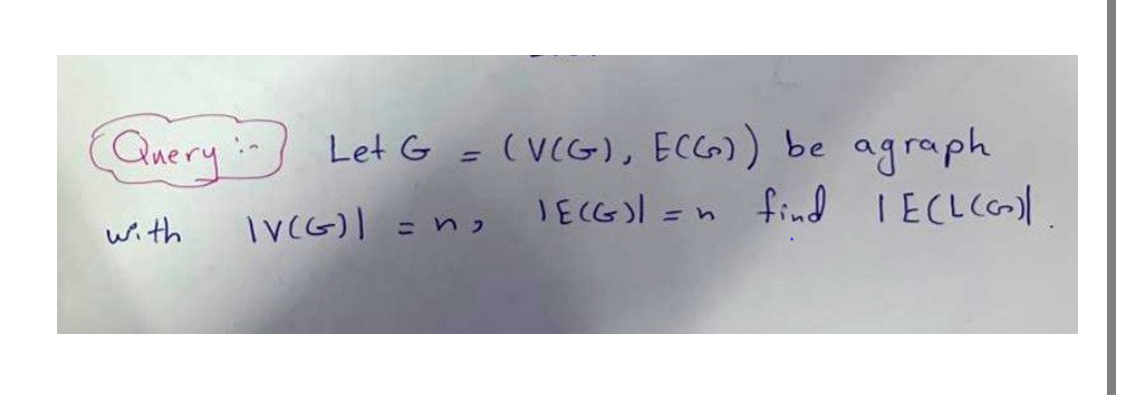 Query :- Let G = (V(G), E(G)) be a graph
with |V(G)| = n, |E(G)| = n find |E(L(G)|.